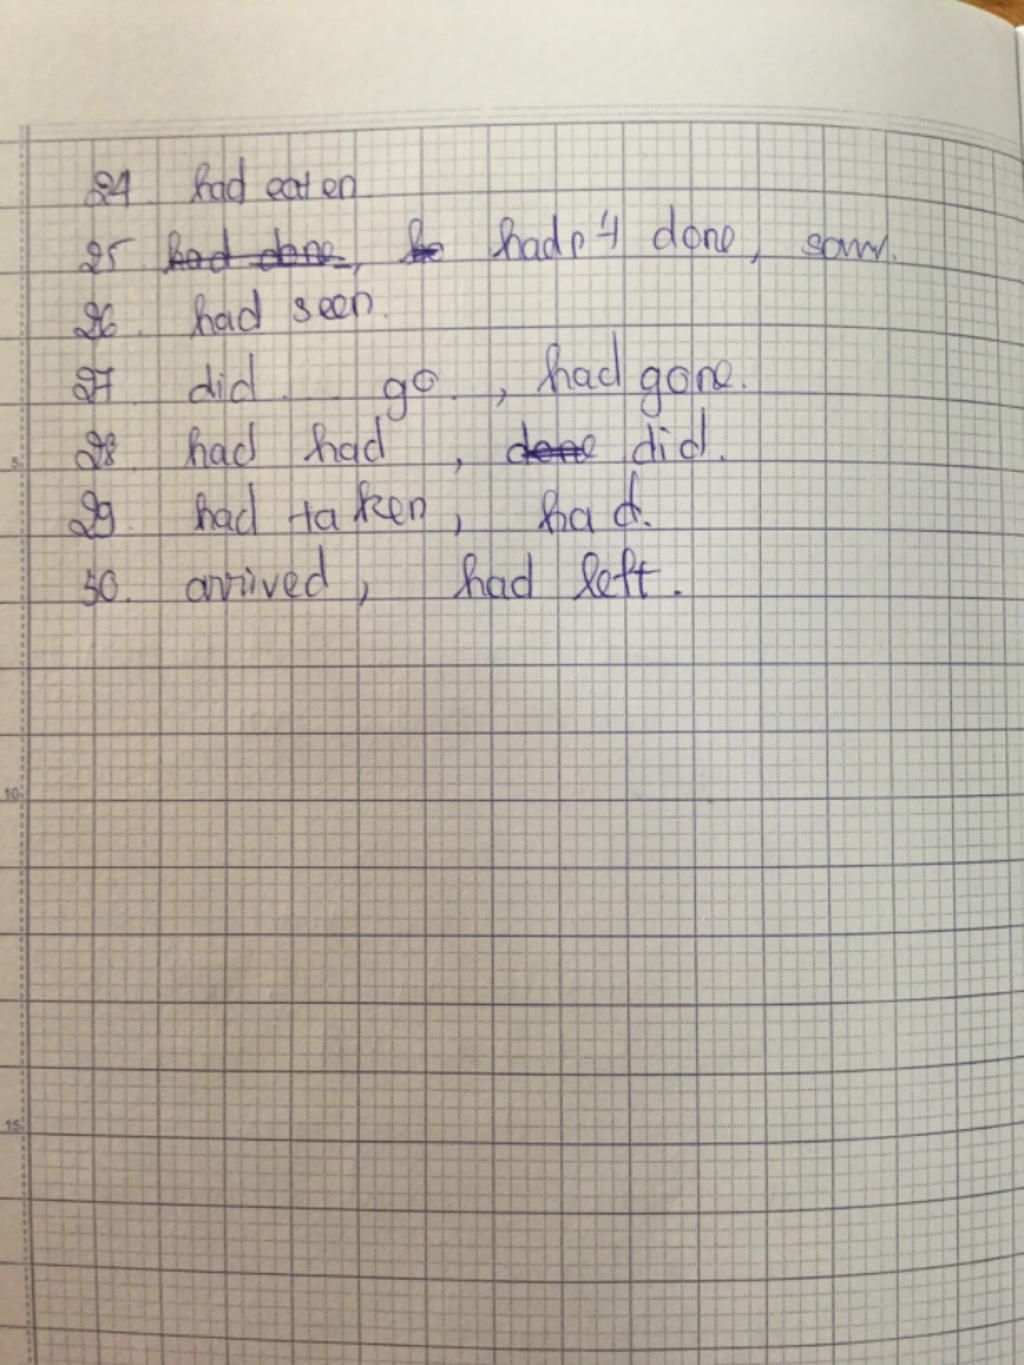 24 had eaten
25 had done, ha hadn't done, saw.
26. had seen.
27 did go, had gone.
28 had had, done did.
29. had taken, had.
30. arrived, had left.
5
10
15